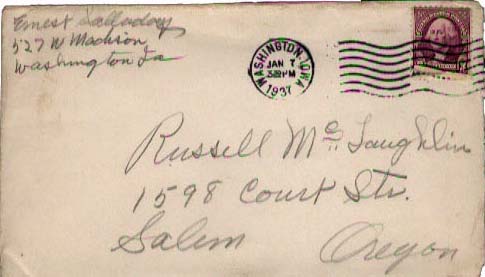 Ernest
527 W Madison
Washington Ia
WASHINGTON, IOWA
JAN 7
PM
1937
Russell McLaughlin
1598 Court Str.
Salem Oregon